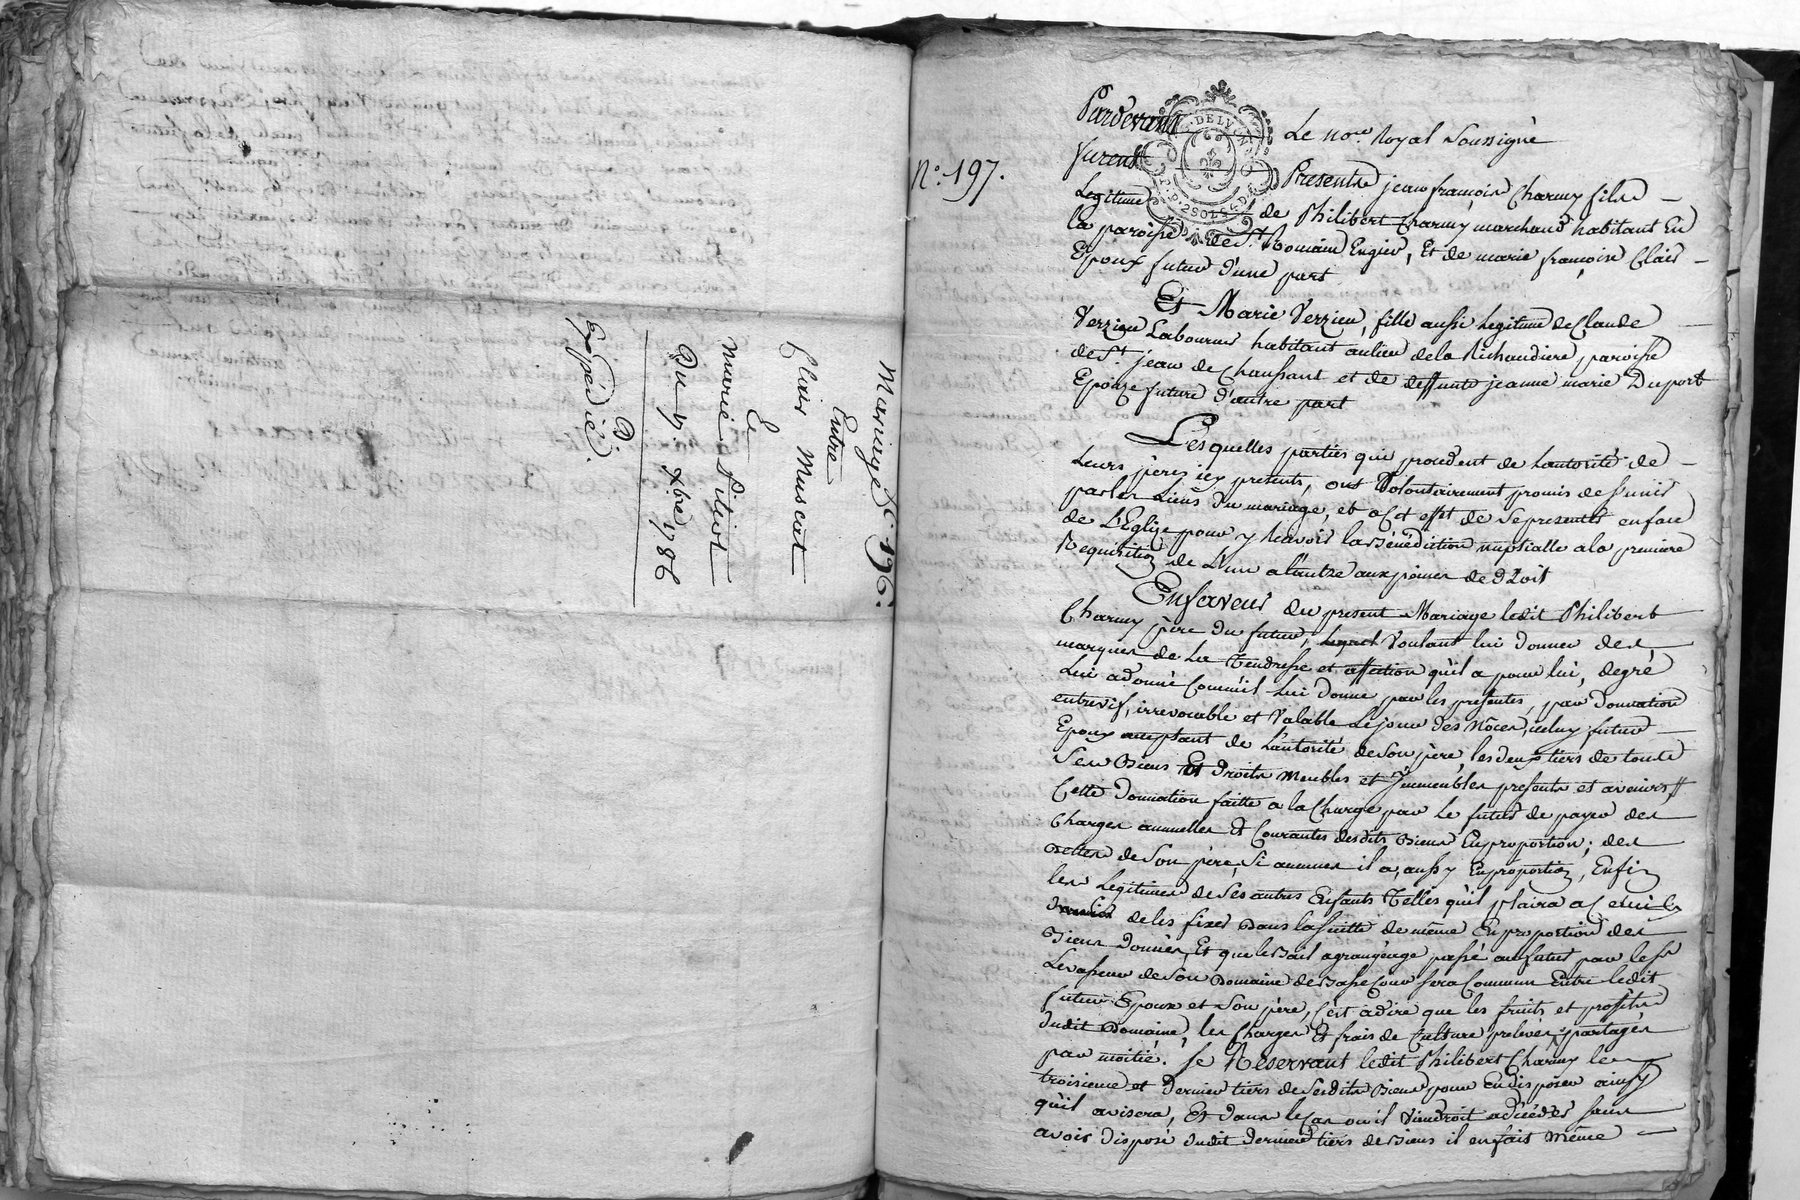 Mariage C. 196.
Entre
Clair Muscat
Et
Marie Pitiot
Du 4 Xbre 1786
Expédié.
N°. 197.
Pardevant Le Nore. Royal Soussigné
furent Presents jean françois Charmy fils
Legitime de Philibert Charmy, marchand habitant En
la paroisse de St. Romain Engier, Et de marie françoise Clair
Epoux futur d'une part
Et Marie Verzieu, fille aussi Legitime de Claude
Verzieu Laboureur habitant au lieu de la Richaudiere, paroisse
de St jean de Chaussant et de deffunte jeanne marie Duport
Epouze future d'autre part
Lesquelles parties qui procedent de Lautorité de
Leurs pères icy presents, ont Volontairement promis de s'unir
par les Liens du mariage, et a cet effet de se presenter en face
de L'Eglize pour y Recevoir la Bénédiction nuptialle a la premiere
Requisition de L'un a lautre aux peines de droit
En faveur du present Mariage ledit Philibert
Charmy père du futur, Voulant lui donner des
marques de La Tendresse et affection qu'il a pour lui, de gré
Lui a donné Comme il Lui donne par les presentes, par donnation
entrevif, irrevocable et Valable Le jour des Nôces, icelluy futur
Epoux acceptant de L'autorité de son père, les deux tiers de touts
Ses Biens Et droits Meubles et Immeubles presents et avenirs,
Cette donnation faitte a la Charge par Le futur de payer des
Charges annuelles Et Courantes desdits Biens En proportion; des
dettes de Son père, Si aucunes il a, aussy En proportion, Enfin
les Legitimes de Ses autres Enfants Telles qu'il plaira a celui
de les fixer Dans la suitte de même En proportion des
Biens donnés, Et que le Bail a grangéage passé au futur par le Sr
Levasseur de Son Domaine de Basse Cour sera Commun Entre ledit
futur Epoux et Son père, C'est a dire que les fruits et profits
dudit Domaine, les Charges Et frais de Culture prelevés, partagés
par moitié. Se Réservant ledit Philibert Charmy le
troisieme et dernier tiers de Sesdits Biens pour En disposer ainsy
qu'il avisera, Et dans le Cas ou il Viendroit a décéder Sans
avoir disposé dudit dernier tiers de Biens il en fait même